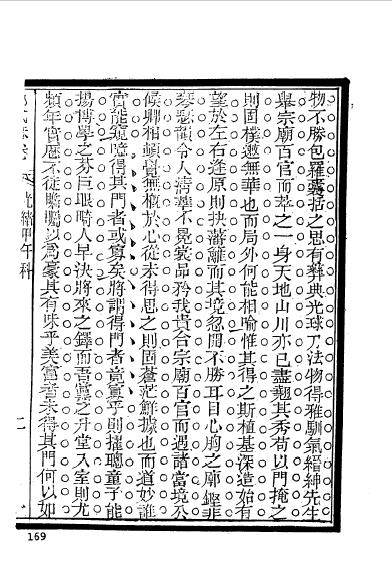 物不勝包羅囊括之思有彝典光球刀法物得雅馴氣縉紳先生
舉宗廟百官而萃之一身天地山川亦已盡翹其秀苟以門掩之
則固樸遬無華也而局外何能相喻惟其得之斯植基深造始有
望於左右逢原則抉藩離而其境忽開不勝耳目心胸之廓鏗非
琴瑟韻令人清華不冕裳品矜我貴合宗廟百官而遇諸當境公
候卿相頓覺無稂於心從未得思之則固蒼茫鮮據也而道妙誰
實能窺噫得其門者或寡矣將謂得門者竟寡乎則擢聰童子能
揚博學之芬巨眼疇人早決將來之鐸而吾黨之升堂入室則尤
頻年宮歷不徒鵰鶚以為豪其有味乎美富者未得其門何以如
光緒甲午科
二
169